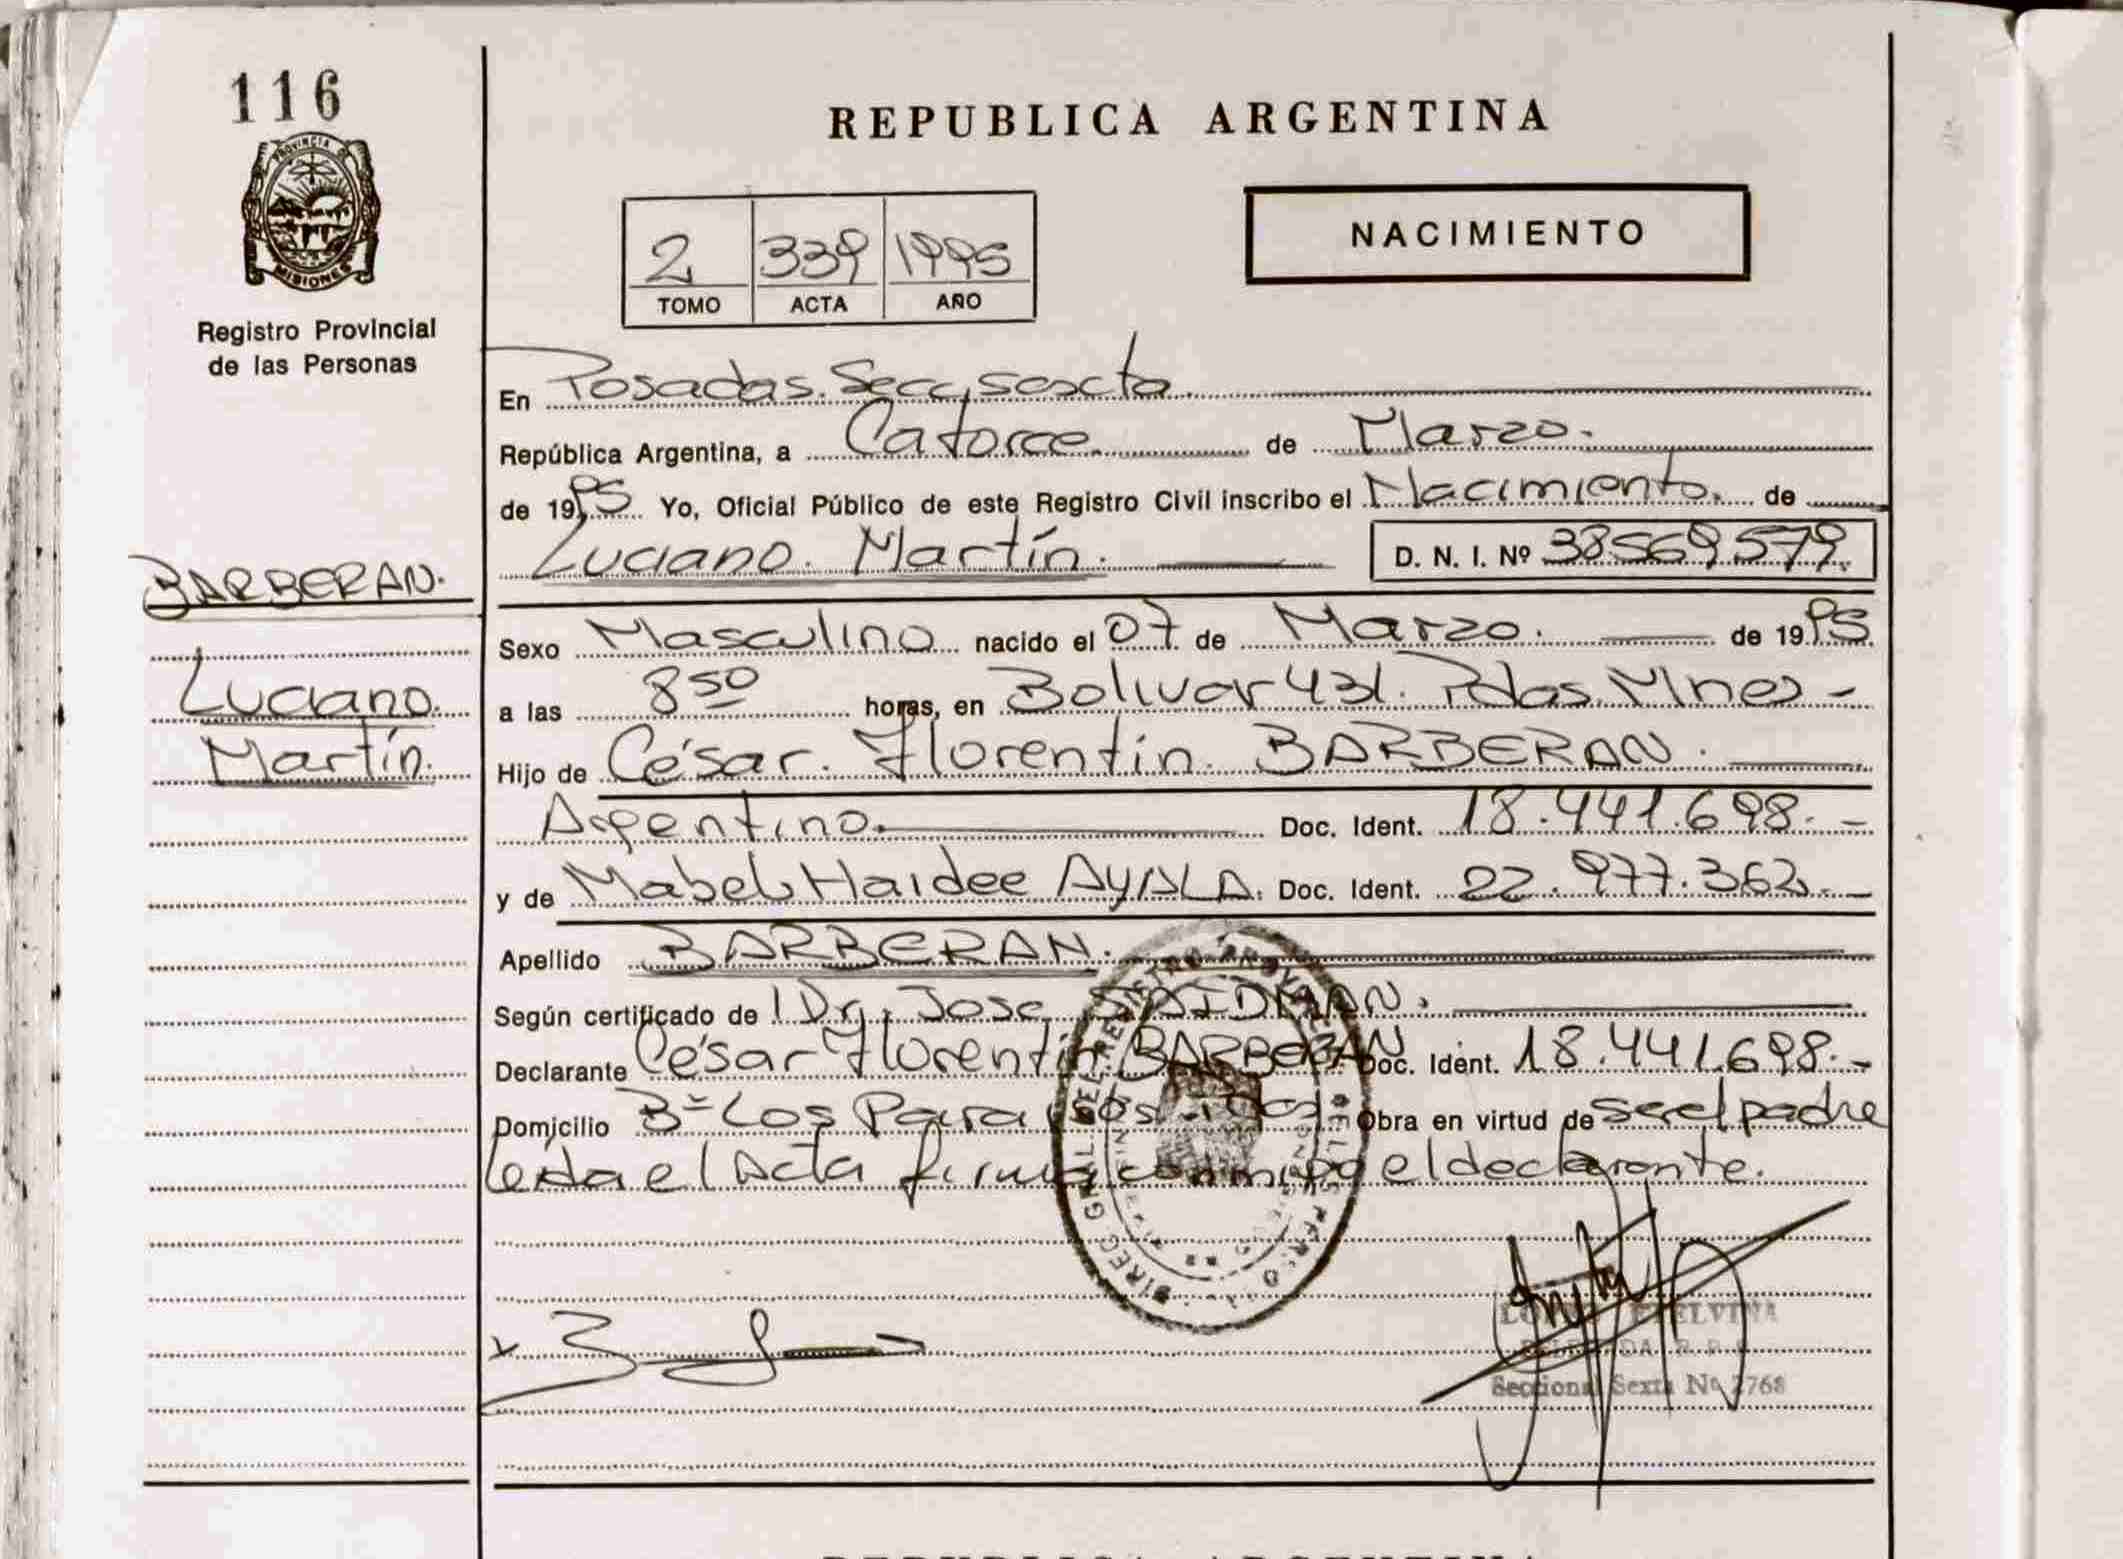 116
PROVINCIA DE
MISIONES
Registro Provincial
de las Personas
BARBERAN.
Luciano.
Martín.
REPUBLICA ARGENTINA
NACIMIENTO
2 339 1995
TOMO ACTA AÑO
En Posadas. Secc, sexcta
República Argentina, a Catorce de Marzo.
de 1995 Yo, Oficial Público de este Registro Civil inscribo el Nacimiento. de
Luciano. Martín. D. N. I. Nº 38569.579.
Sexo Masculino nacido el 07 de Marzo. de 1995
a las 8 50 horas, en Bolivar 431. Pdas. Mnes -
Hijo de César. Florentín. BARBERAN.
Argentino. Doc. Ident. 18.441.698. -
y de Mabel Haidee AYALA. Doc. Ident. 22.977.362. -
Apellido BARBERAN.
Según certificado de Dr. Jose SAIDMAN.
Declarante César Florentín BARBERAN Doc. Ident. 18.441.698. -
Domicilio Bº Los Paraisos Obra en virtud de ser el padre
Leida el Acta firma conmigo el declarante.
DIREC. GRAL. DEL REGISTRO
ELVINA
Seccional Sexta Nº 2768
REPUBLICA ARGENTINA